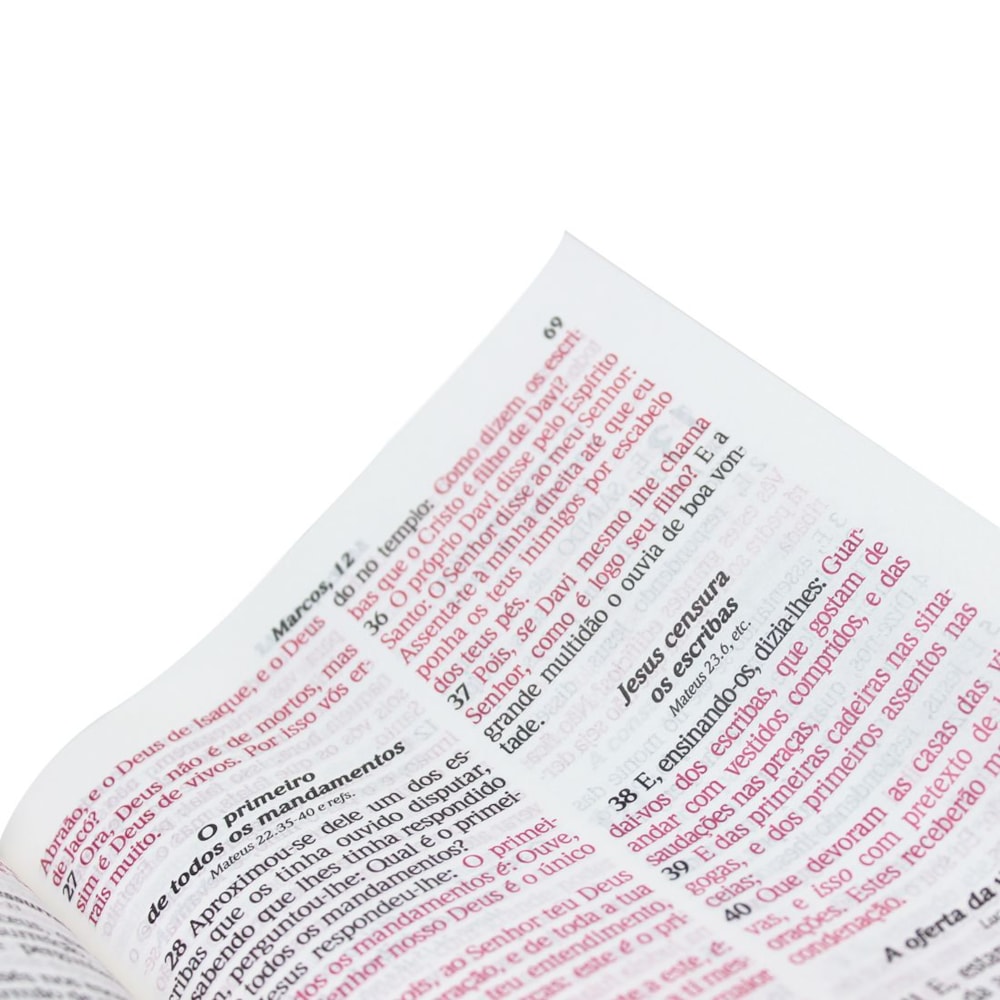 Marcos, 12
69
Abraão, e o Deus de Isaque, e o Deus
de Jacó?
27 Ora, Deus não é de mortos, mas
sim é Deus de vivos. Por isso vós er-
rais muito.
O primeiro
de todos os mandamentos
Mateus 22.35-40 e refs.
28 Aproximou-se dele um dos es-
cribas que os tinha ouvido disputar,
sabendo que lhes tinha respondido
perguntou-lhe: Qual é o primei-
todos os mandamentos?
Jesus respondeu-lhe: O primei-
dos os mandamentos é: Ouve,
Senhor nosso Deus é o único
pois, ao Senhor teu Deus
e de toda a tua
teu entendimento,
forças: este é o pri-
a este, é:
a ti mes-
do no templo: Como dizem os escri-
bas que o Cristo é filho de Davi?
36 O próprio Davi disse pelo Espírito
Santo: O Senhor disse ao meu Senhor:
Assenta-te à minha direita até que eu
ponha os teus inimigos por escabelo
dos teus pés.
37 Pois, se Davi mesmo lhe chama
Senhor, como é logo seu filho? E a
grande multidão o ouvia de boa von-
tade.
Jesus censura
os escribas
Mateus 23.6, etc.
38 E, ensinando-os, dizia-lhes: Guar-
dai-vos dos escribas, que gostam de
andar com vestidos compridos, e das
saudações nas praças,
39 E das primeiras cadeiras nas sina-
gogas, e dos primeiros assentos nas
ceias;
40 Que devoram as casas das
vas, e isso com pretexto de
orações. Estes receberão
condenação.
A oferta da
E, estan